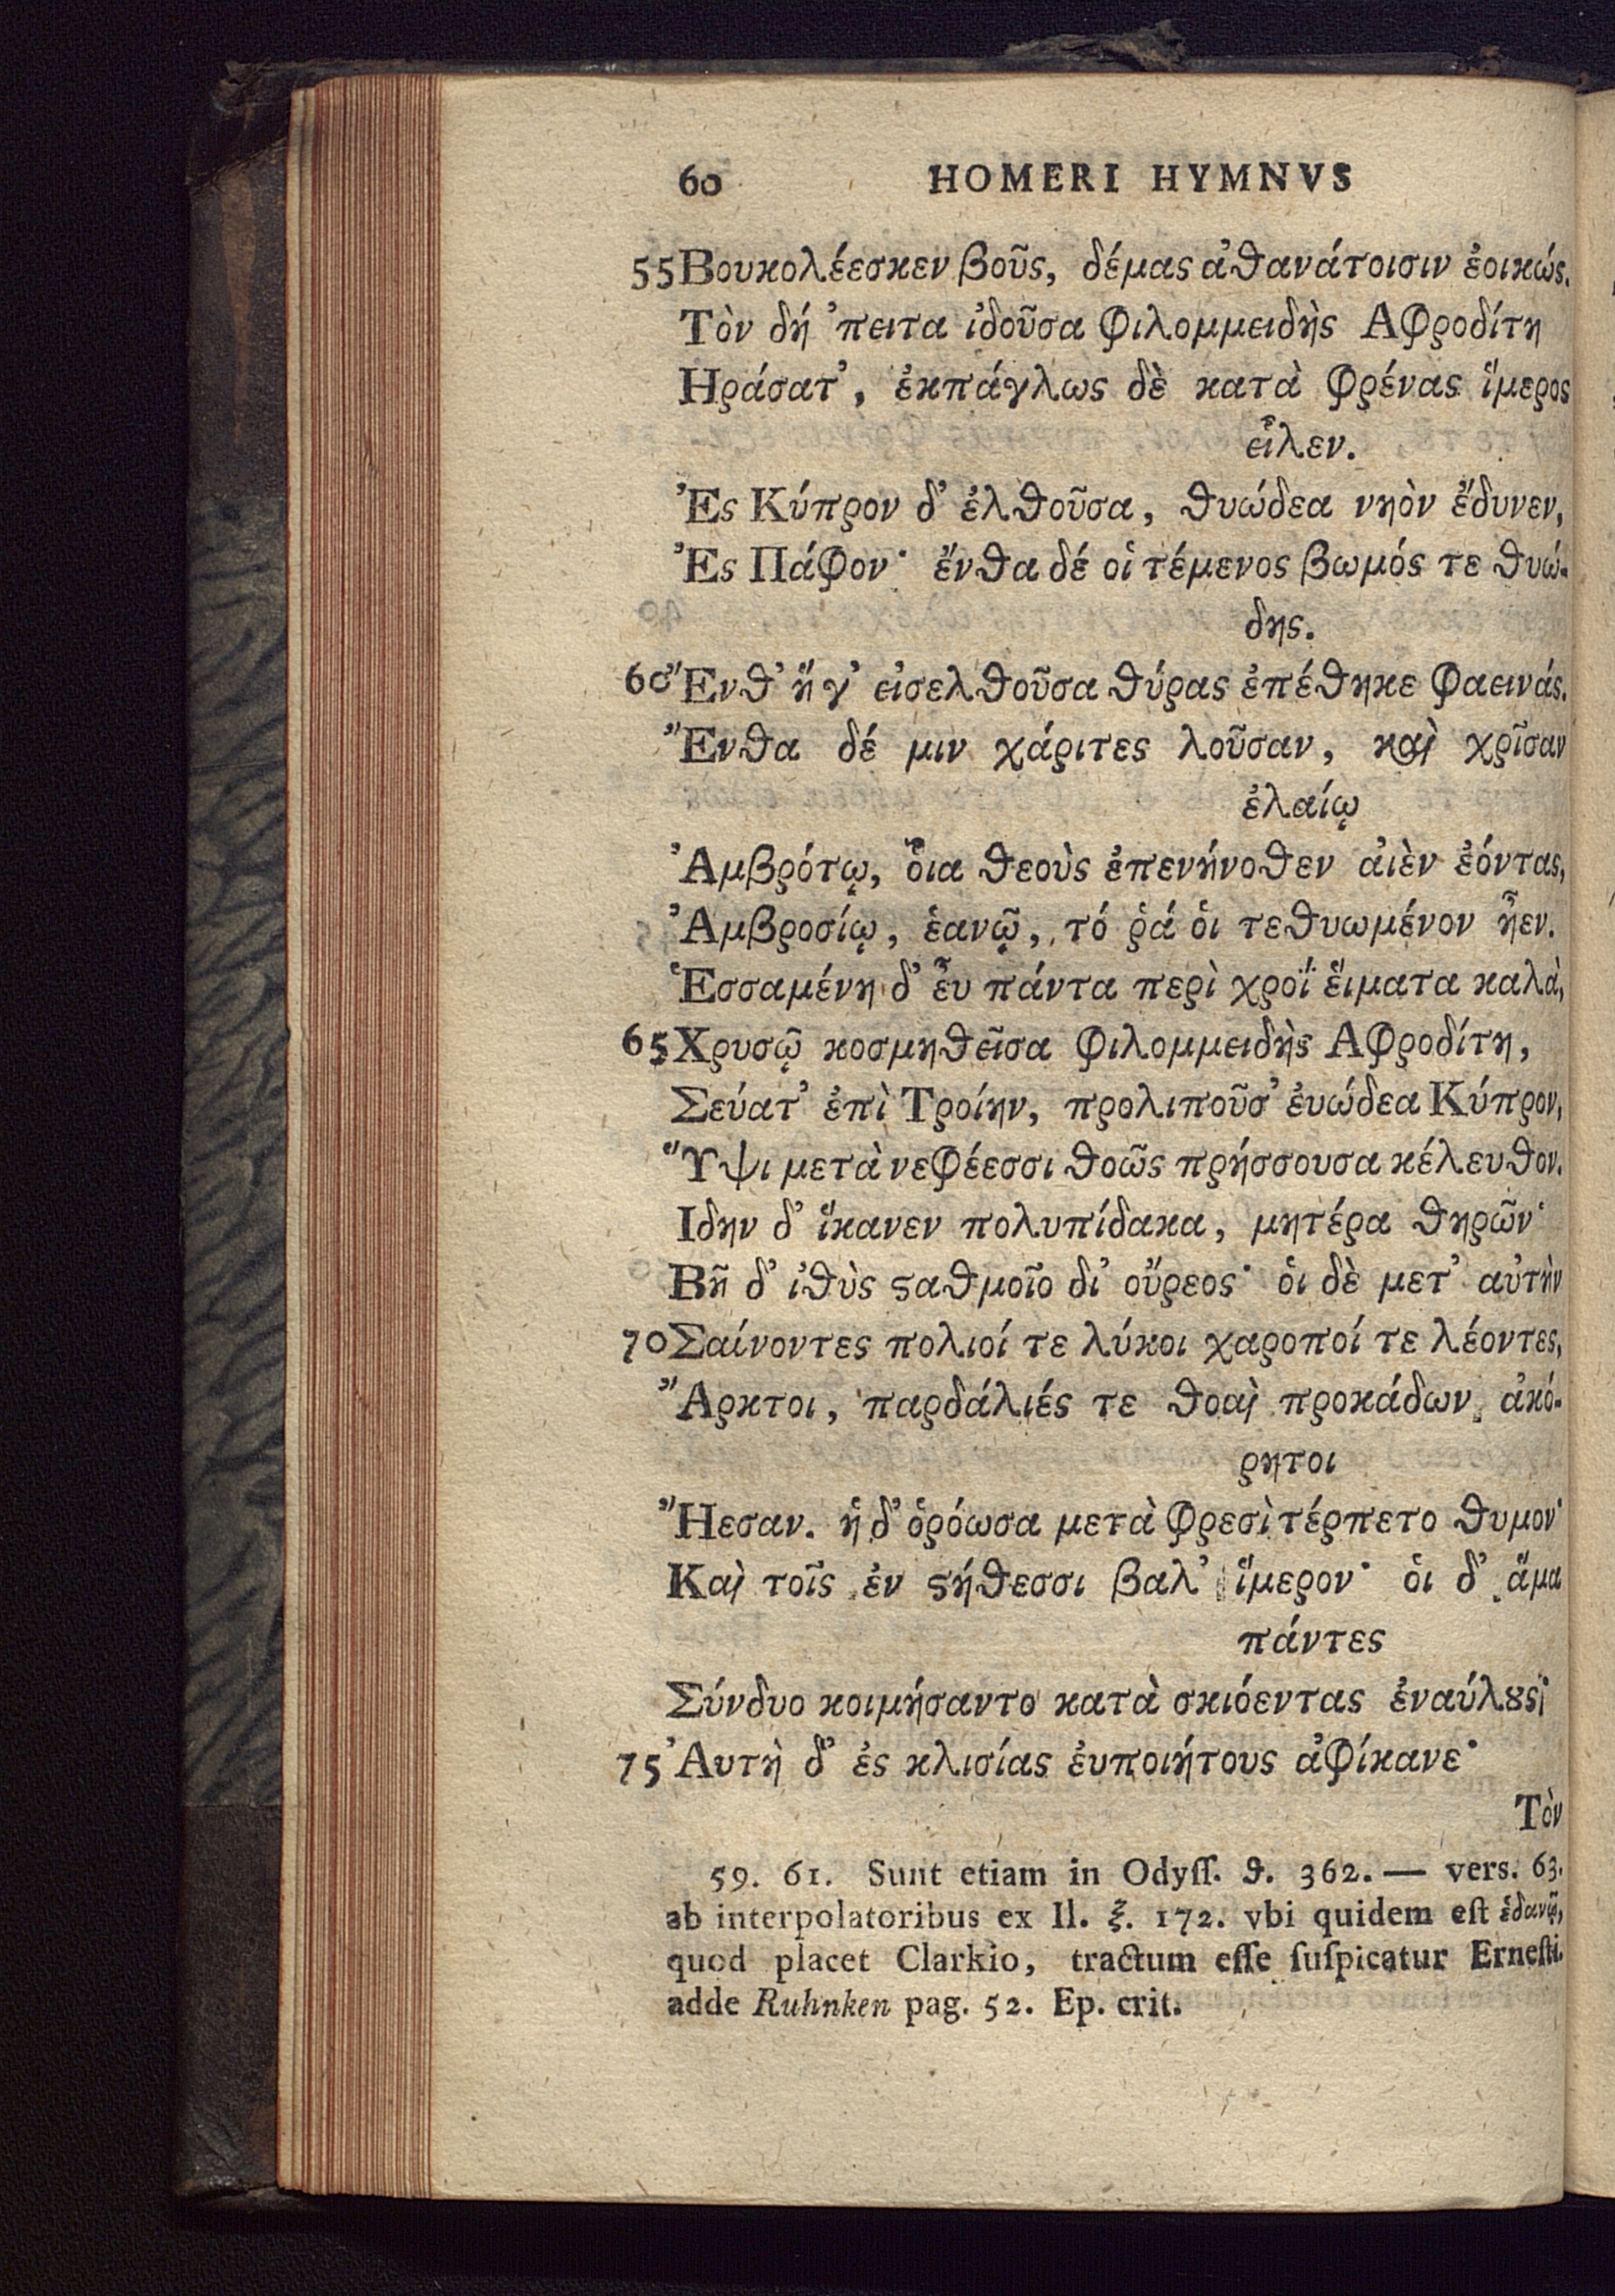 60 HOMERI HYMNVS
55 Βουκολέεσκεν βοῦς, δέμας ἀθανάτοισιν ἐοικώς.
Τὸν δή ᾿πειτα ἰδοῦσα φιλομμειδὴς Αφροδίτη
Ηράσατ᾿, ἐκπάγλως δὲ κατὰ φρένας ἵμερος
εἷλεν.
Ἐς Κύπρον δ᾿ ἐλθοῦσα, θυώδεα νηὸν ἔδυνεν,
Ἐς Πάφον· ἔνθα δέ οἱ τέμενος βωμός τε θυώ-
δης.
60 Ἔνθ᾿ ἥ γ᾿ εἰσελθοῦσα θύρας ἐπέθηκε φαεινάς.
Ἔνθα δέ μιν χάριτες λοῦσαν, καὶ χρῖσαν
ἐλαίῳ
Ἀμβρότῳ, ὅια θεοὺς ἐπενήνοθεν ἀιὲν ἐόντας,
Ἀμβροσίῳ, ἑανῷ, τό ῥά ὁι τεθυωμένον ἦεν.
Ἑσσαμένη δ᾿ ἐῦ πάντα περὶ χροῒ ἕιματα καλὰ,
65 Χρυσῷ κοσμηθεῖσα φιλομμειδὴς Αφροδίτη,
Σεύατ᾿ ἐπὶ Τροίην, προλιποῦσ᾿ ἐυώδεα Κύπρον,
Ὕψι μετὰ νεφέεσσι θοῶς πρήσσουσα κέλευθον.
Ιδην δ᾿ ἵκανεν πολυπίδακα, μητέρα θηρῶν·
Βῆ δ᾿ ἰθὺς ϛαθμοῖο δι᾿ οὔρεος· ὁι δὲ μετ᾿ αὐτὴν
70 Σαίνοντες πολιοί τε λύκοι χαροποί τε λέοντες,
Ἄρκτοι, παρδάλιές τε θοαὶ προκάδων ἀκό-
ρητοι
Ἤεσαν. ἡ δ᾿ ὁρόωσα μετὰ φρεσὶ τέρπετο θυμον·
Καὶ τοῖς ἐν ϛήθεσσι βαλ᾿ ἵμερον· ὁι δ᾿ ἅμα
πάντες
Σύνδυο κοιμήσαντο κατὰ σκιόεντας ἐναύλȣς·
75 Ἀυτὴ δ᾿ ἐς κλισίας ἐυποιήτους ἀφίκανε·
Τὸν
59. 61. Sunt etiam in Odyſſ. ϑ. 362. — vers. 63.
ab interpolatoribus ex Il. ξ. 172. vbi quidem eſt ἑδανῷ,
quod placet Clarkio, tractum eſſe ſuſpicatur Erneſti.
adde Ruhnken pag. 52. Ep. crit.